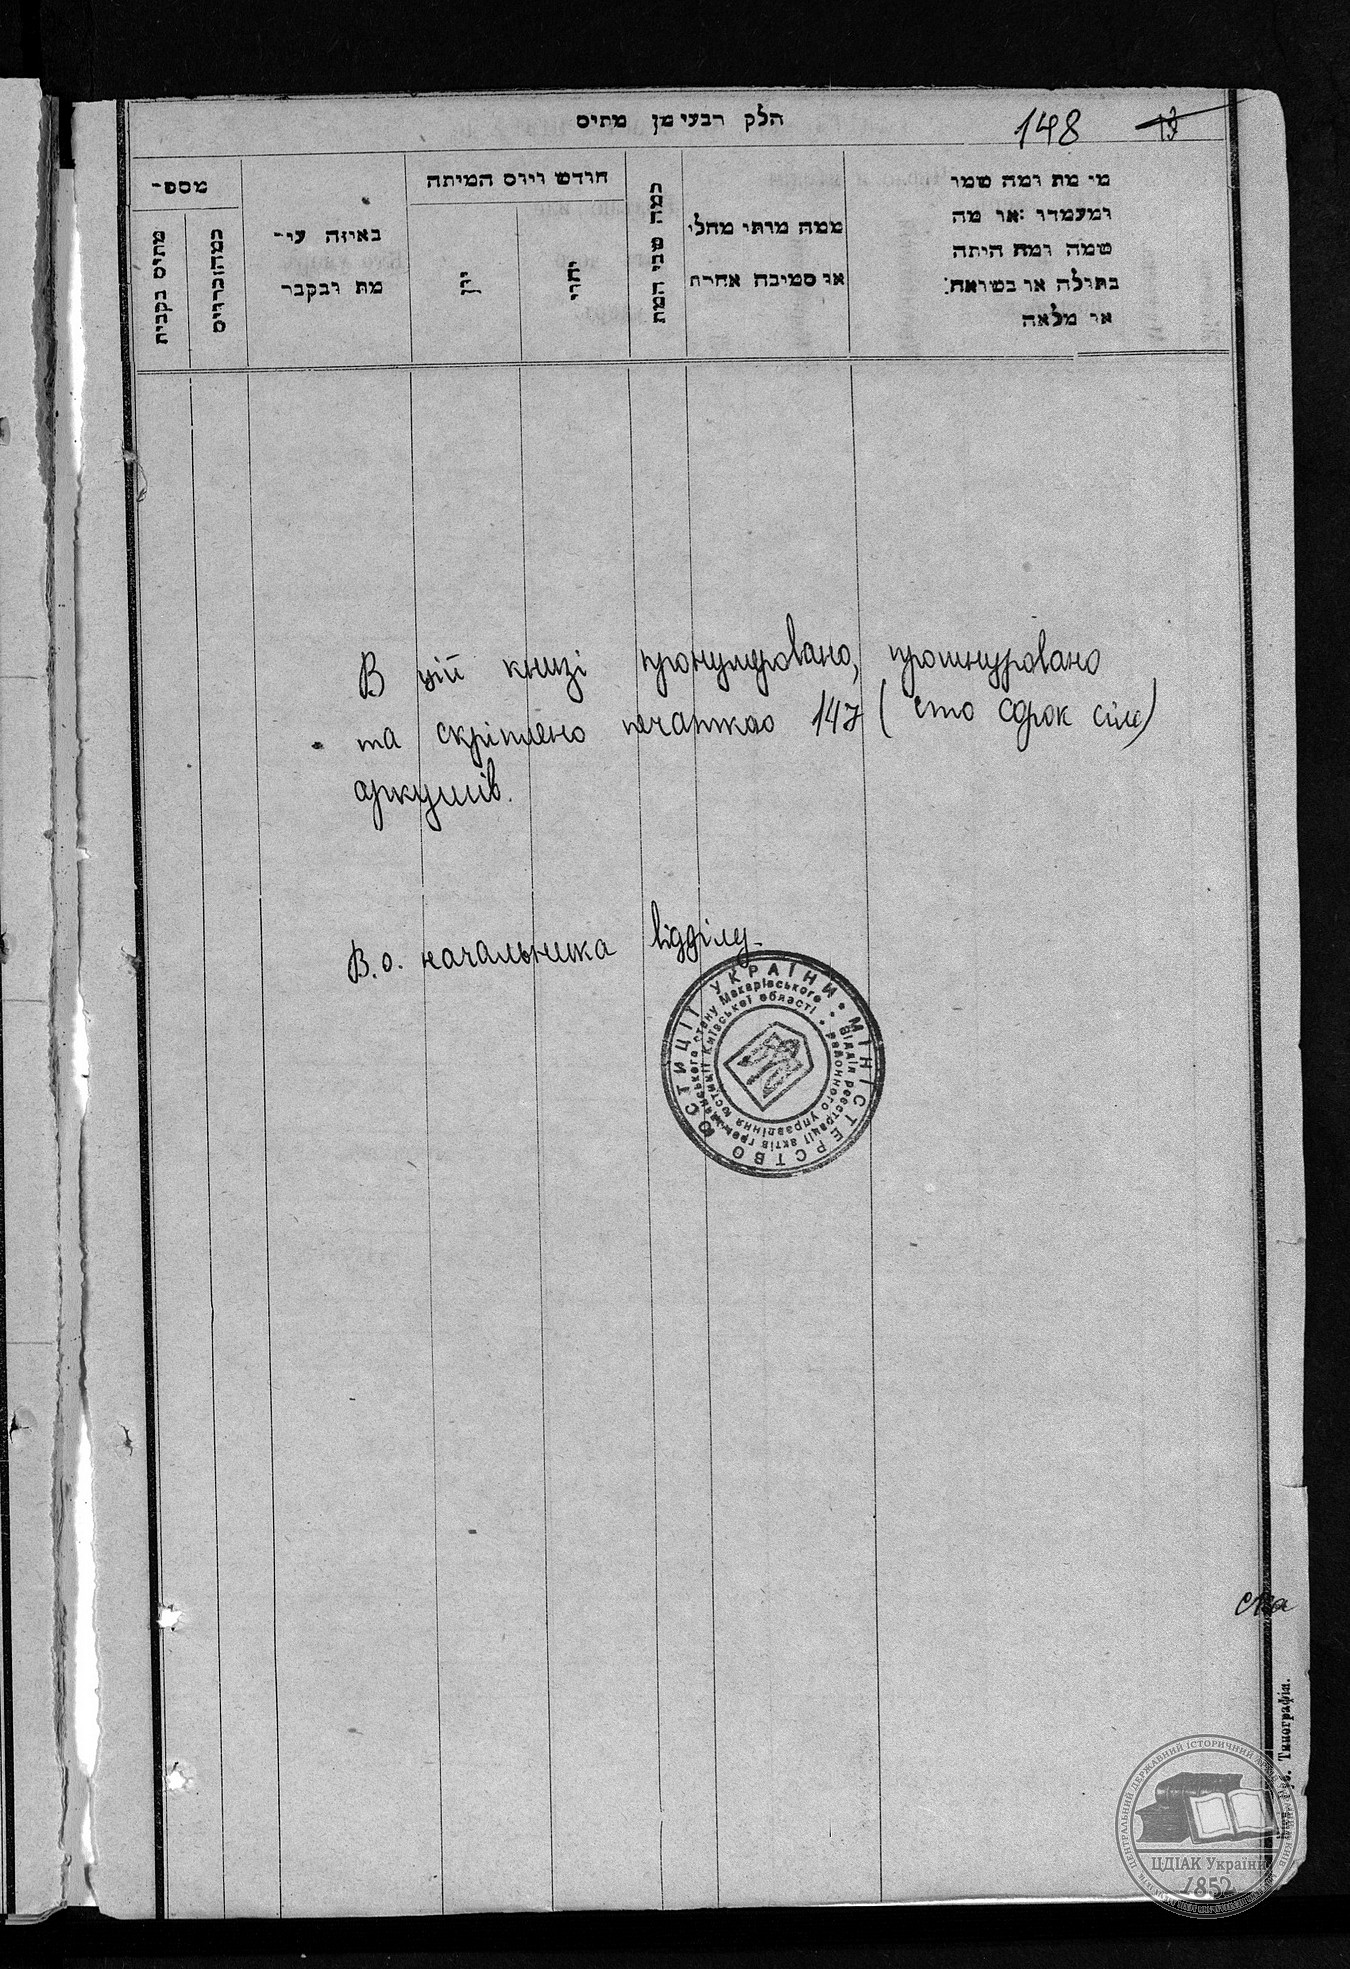 חלק רבעי מן מתים
148
13
מספ־
חודש ויום המיתה
מתים בקבית
כמהזכרוים
באיזה עי־
מת ונקבר
יהודי
כמה שני המת
ממה מותי מחלי
או מסיבה אחרת
מי מת ומה שמו
ומעמדו או מה
שמה ומה היתה
בתולה או נשואה
או מלאה
В цій книзі пронумеровано, прошнуровано
та скріплено печаткою 147 ( сто сорок сім)
аркушів.
В.о. начальника відділу
МІНІСТЕРСТВО ЮСТИЦІЇ УКРАЇНИ
Відділ реєстрації актів громадянського стану Макарівського
районного управління юстиції Київської області
Губ. Типографія.
ЦЕНТРАЛЬНИЙ ДЕРЖАВНИЙ ІСТОРИЧНИЙ
ЦДІАК України
1852